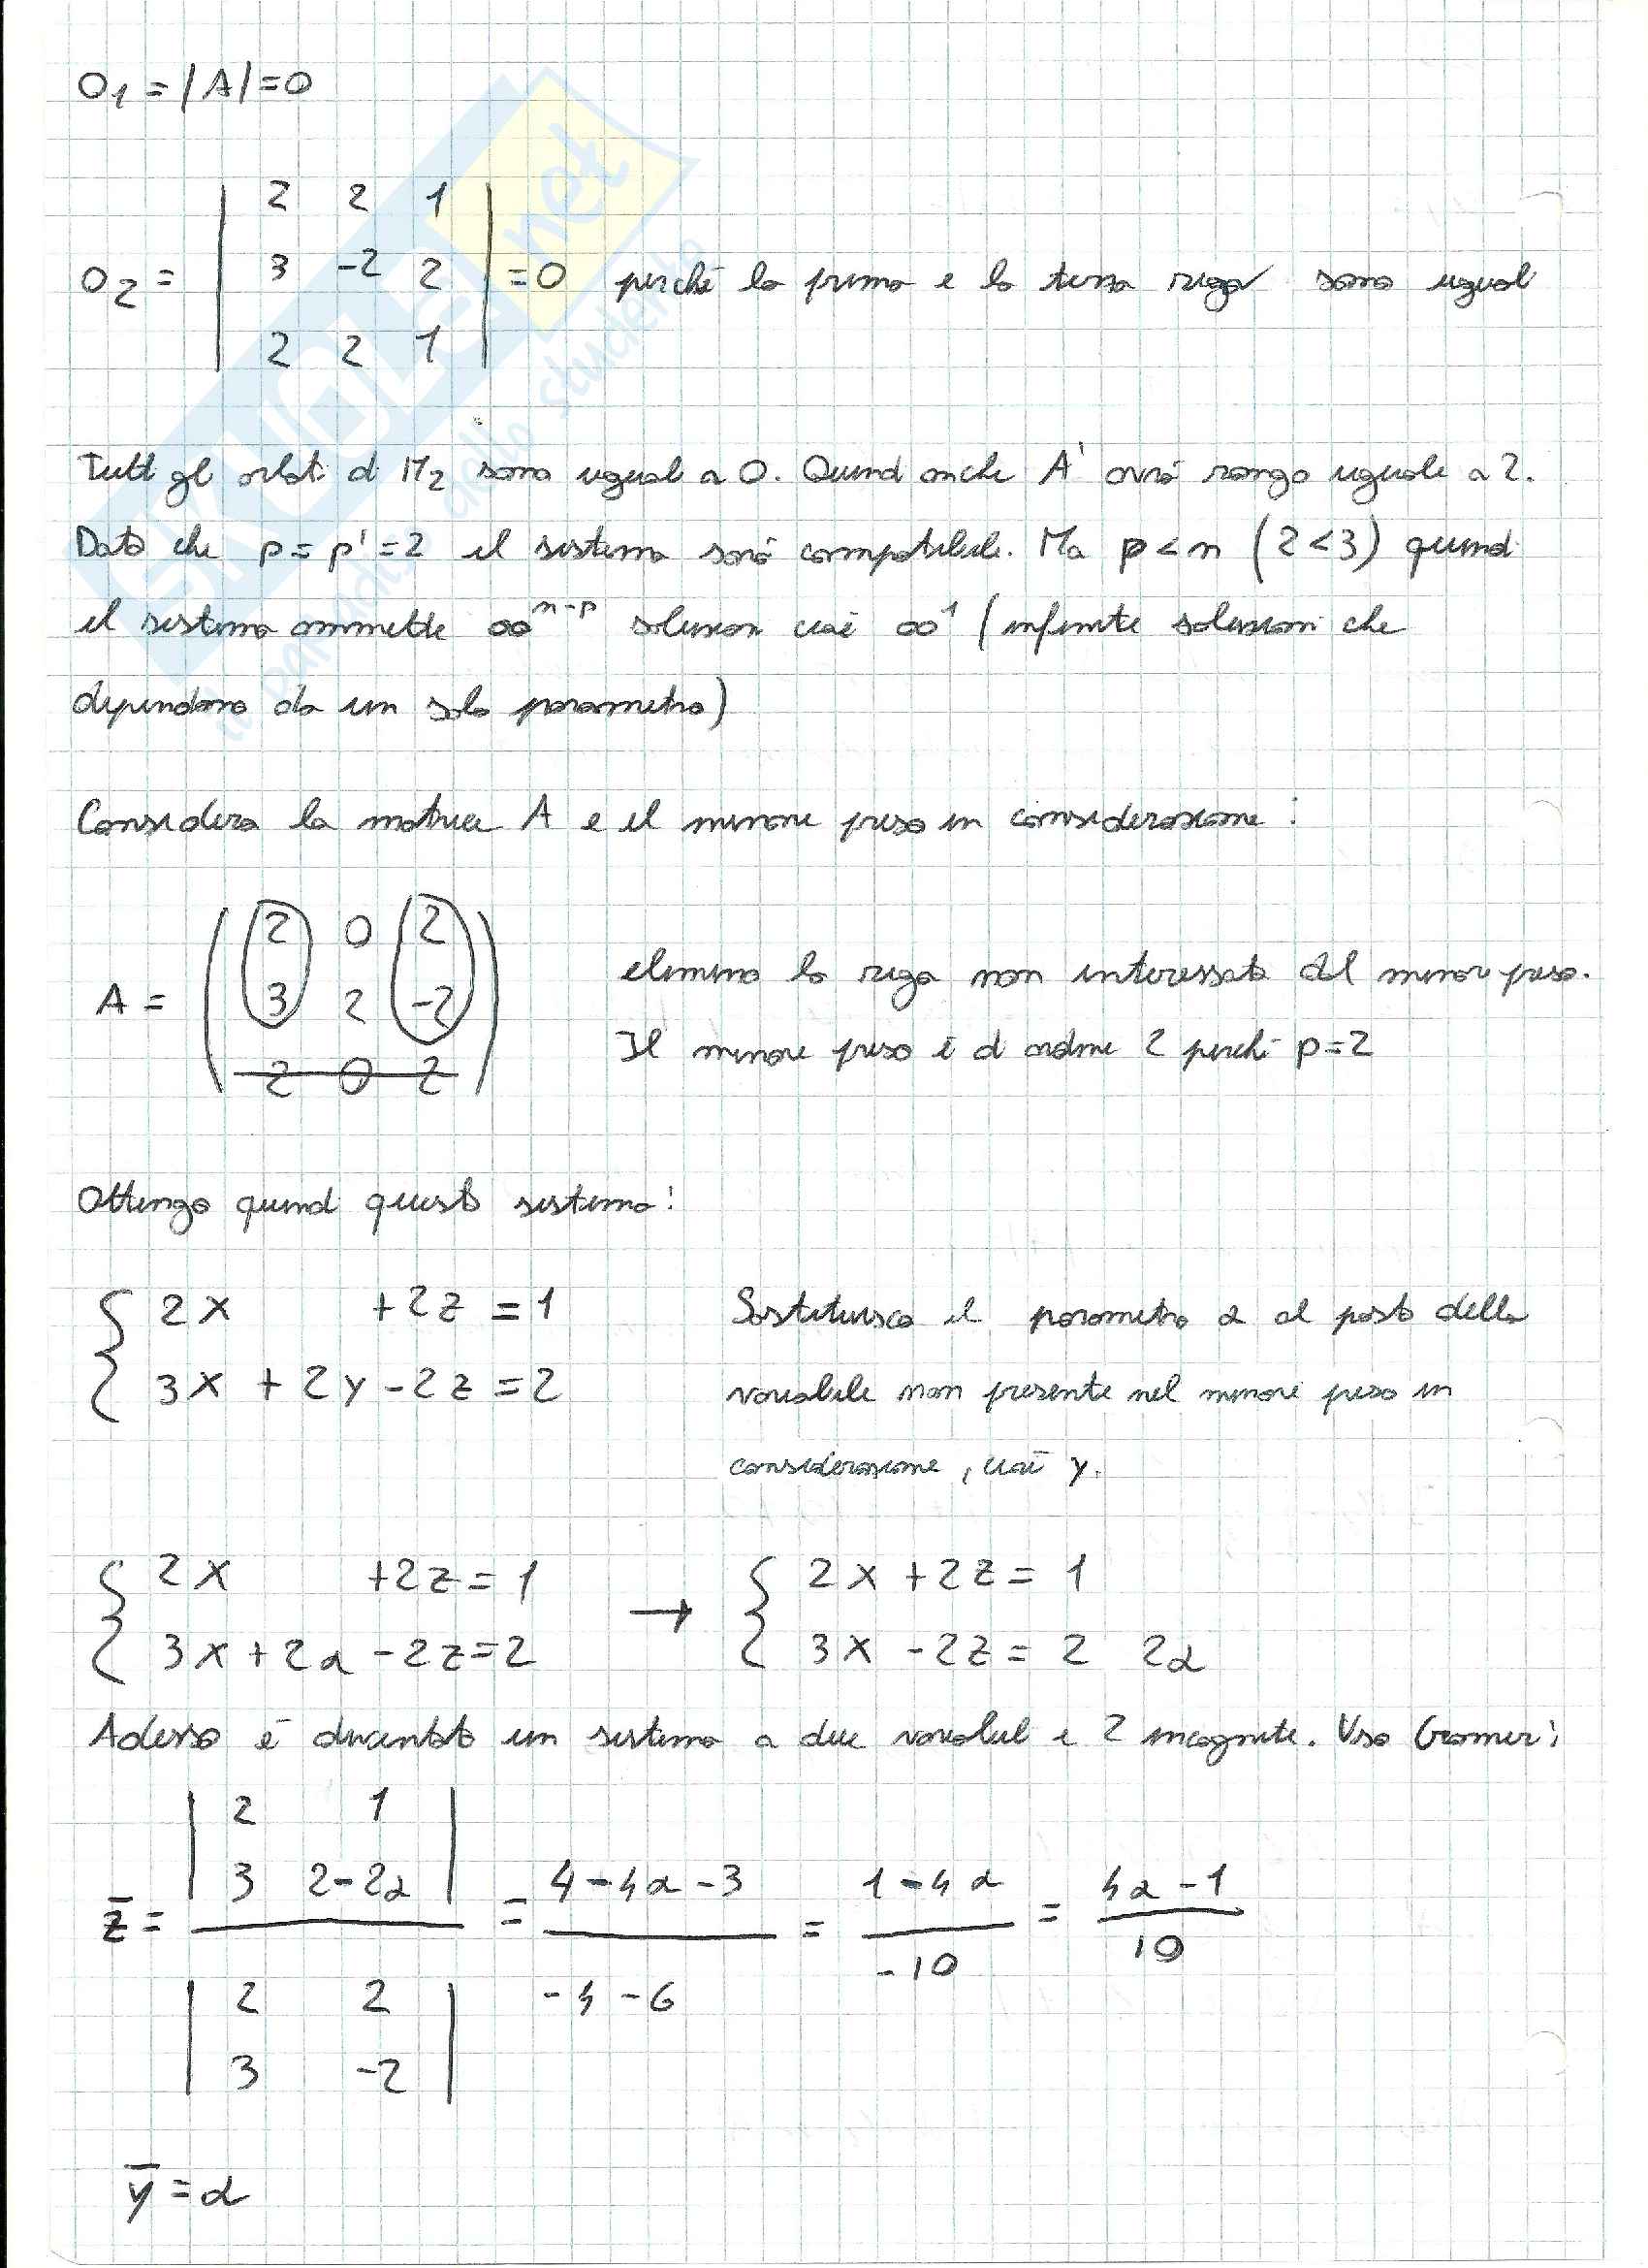 O1 = |A| = 0
2 2 1
O2 = 3 -2 2 = 0 perché la prima e la terza riga sono uguali
2 2 1
Tutti gli orlati di M2 sono uguali a 0. Quindi anche A' avrà rango uguale a 2.
Dato che p = p' = 2 il sistema sarà compatibile. Ma p < n (2 < 3) quindi
il sistema ammette ∞^n-p soluzioni cioè ∞^1 (infinite soluzioni che
dipendono da un solo parametro)
Considero la matrice A e il minore preso in considerazione:
2 0 2
A = 3 2 -2 elimino la riga non interessata dal minore preso.
2 0 2 Il minore preso è di ordine 2 perché p = 2
Ottengo quindi questo sistema:
2x +2z = 1 Sostituisco il parametro α al posto della
3x + 2y - 2z = 2 variabile non presente nel minore preso in
considerazione, cioè y.
2x +2z = 1 → 2x + 2z = 1
3x + 2α - 2z = 2 3x - 2z = 2 2α
Adesso è diventato un sistema a due variabili e 2 incognite. Uso Cramer:
2 1
3 2-2α
z̄ = = 4-4α-3 = 1-4α = 4α-1
2 2 -4-6 -10 10
3 -2
ȳ = α